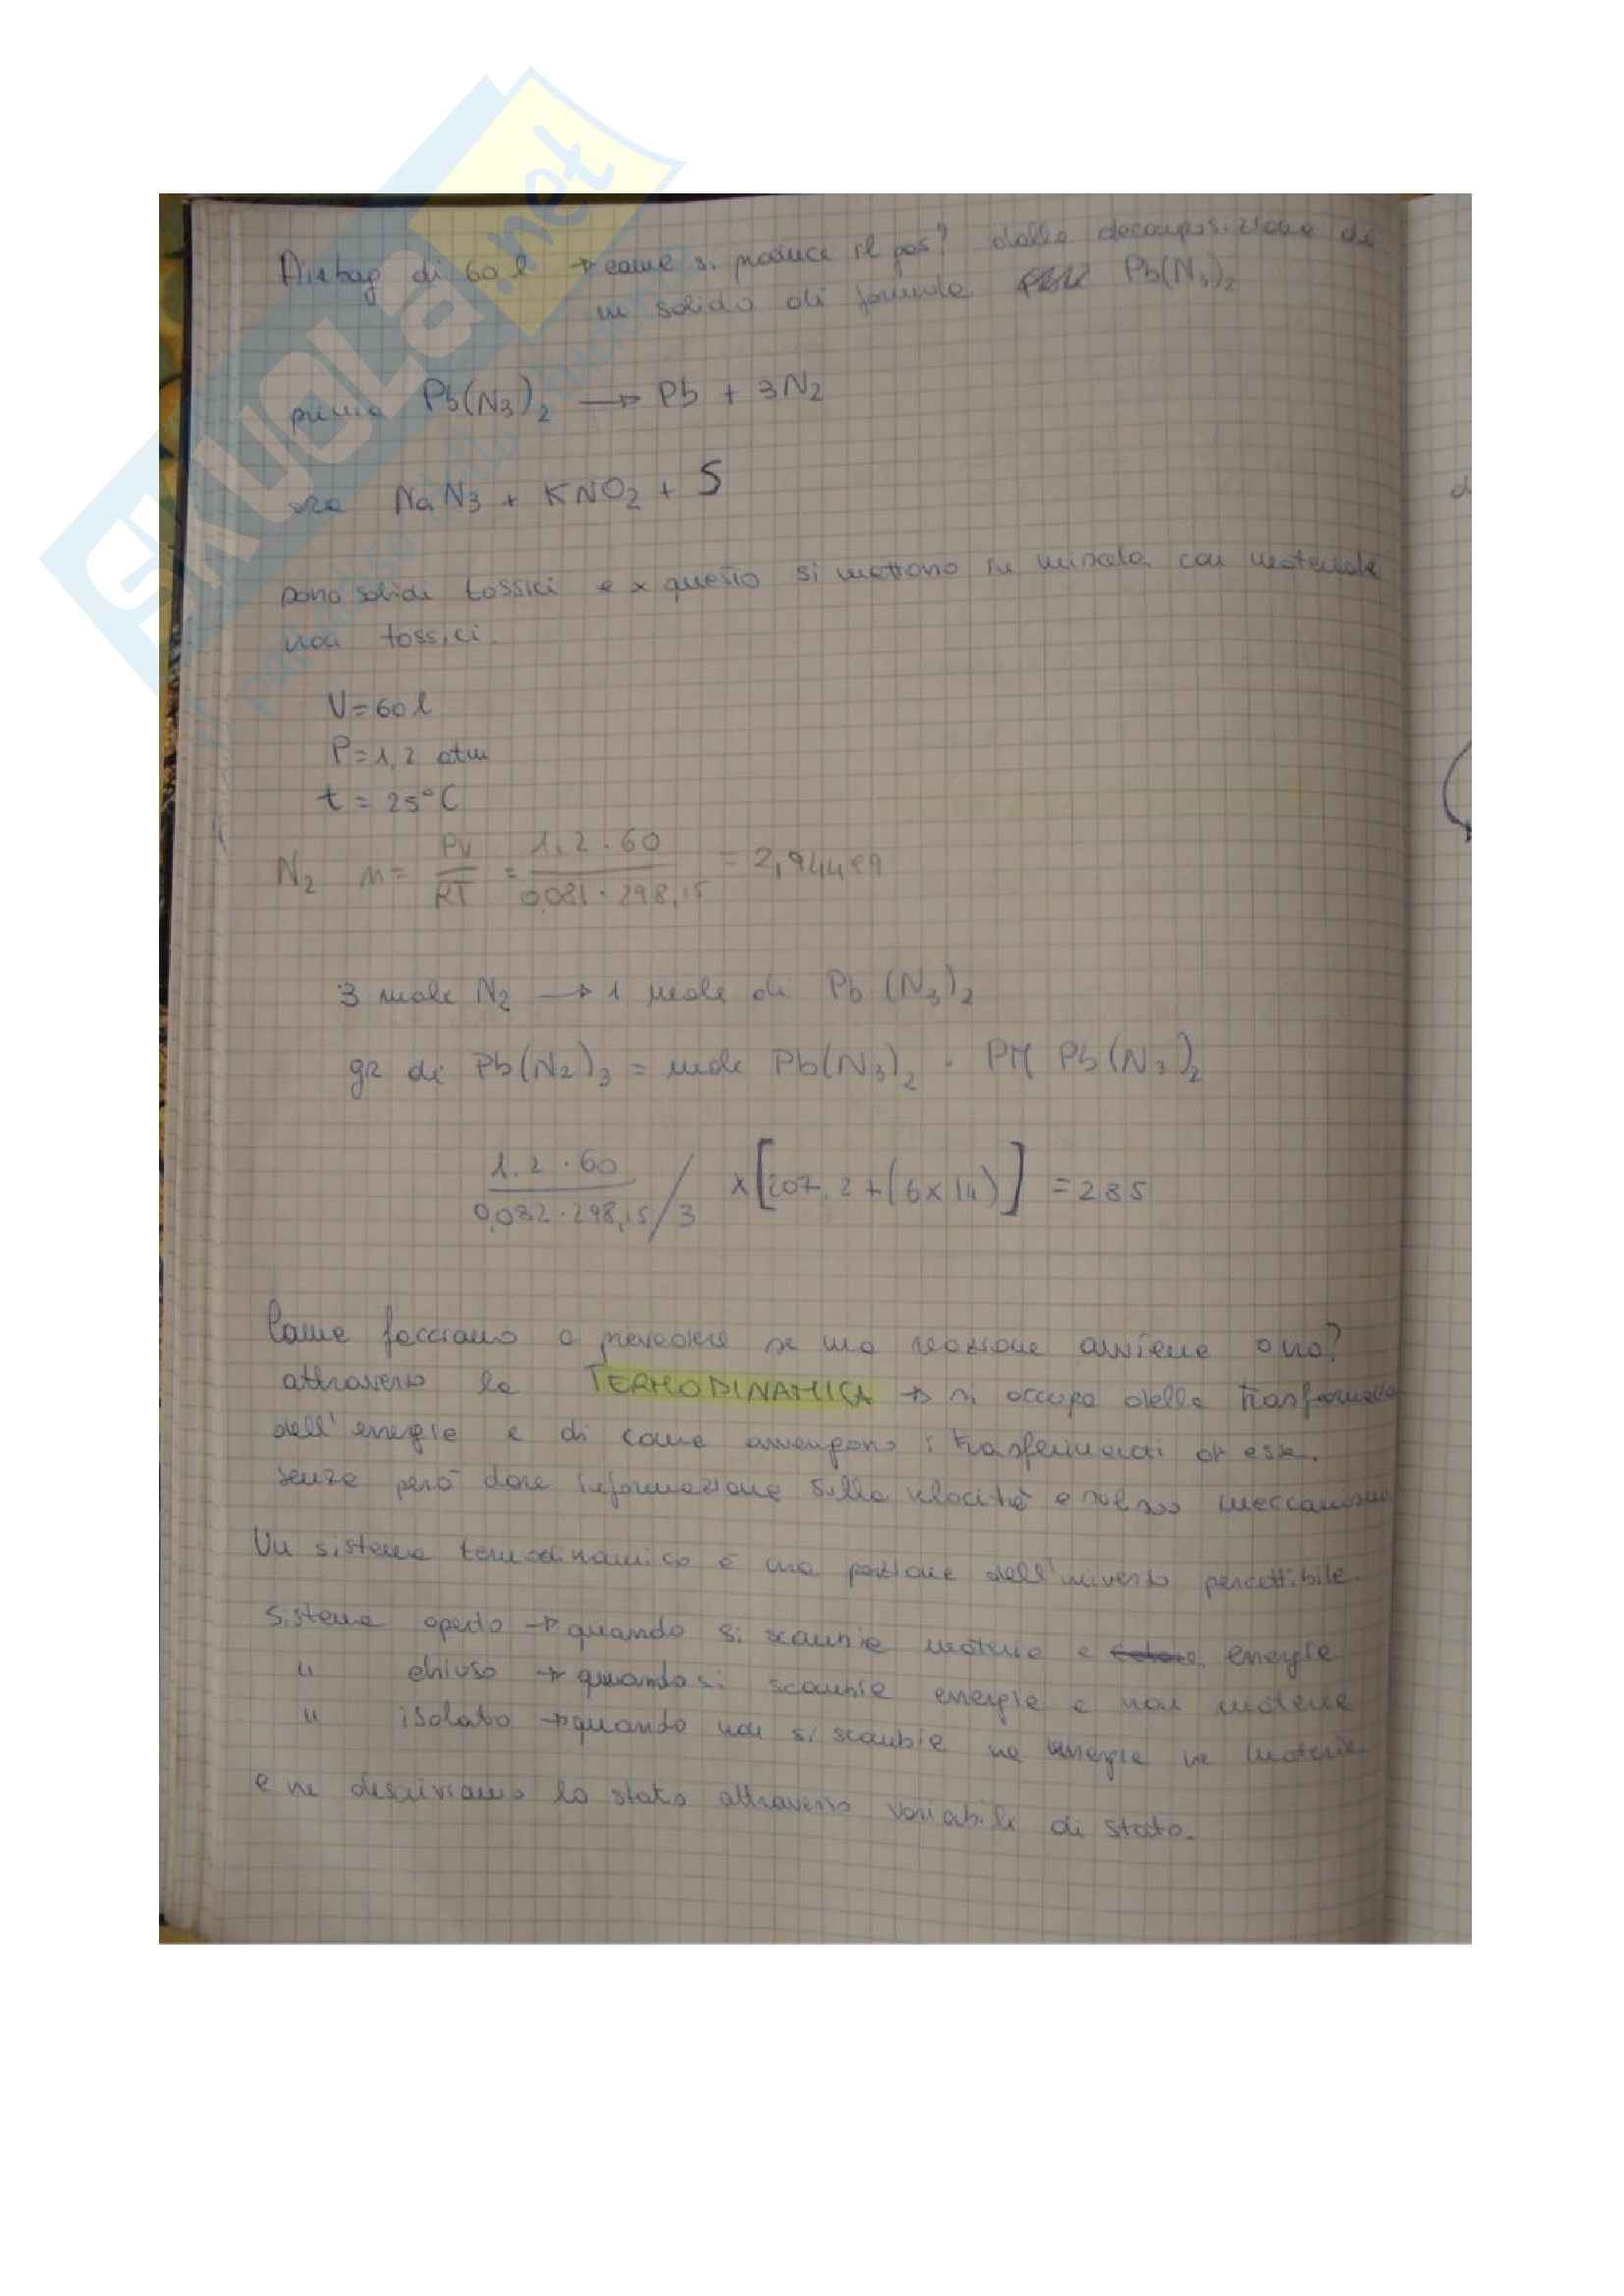 SKUOLa.net
Airbag di 60 l → come si produce il gas? dalla decomposizione di
un solido di formula Pb(N3)2
prima Pb(N3)2 → Pb + 3N2
ora NaN3 + KNO2 + S
sono solidi tossici e x questo si mettono in miscela con materiale
non tossici.
V=60 l
P=1,2 atm
t = 25°C
N2 n= PV/RT = 1,2 . 60 / 0,081 . 298,15 = 2,94499
3 mole N2 → 1 mole di Pb (N3)2
gr di Pb(N2)3 = mole Pb(N3)2 . PM Pb(N3)2
1.2 . 60 / 0,082 . 298,15 / 3 x [207,2 + (6x14)] = 285
Come facciamo a prevedere se una reazione avviene o no?
attraverso la TERMODINAMICA → si occupa della
dell'energia e di come avvengono i trasferimenti di essa.
senza però dare informazione sulla velocità e sul suo meccanismo
Un sistema termodinamico è una porzione dell'universo percettibile.
Sistema aperto → quando si scambia materia e energia
" chiuso → quando si scambia energia e non materia
" isolato → quando non si scambia ne energia ne materia
e ne descriviamo lo stato attraverso variabili di stato.